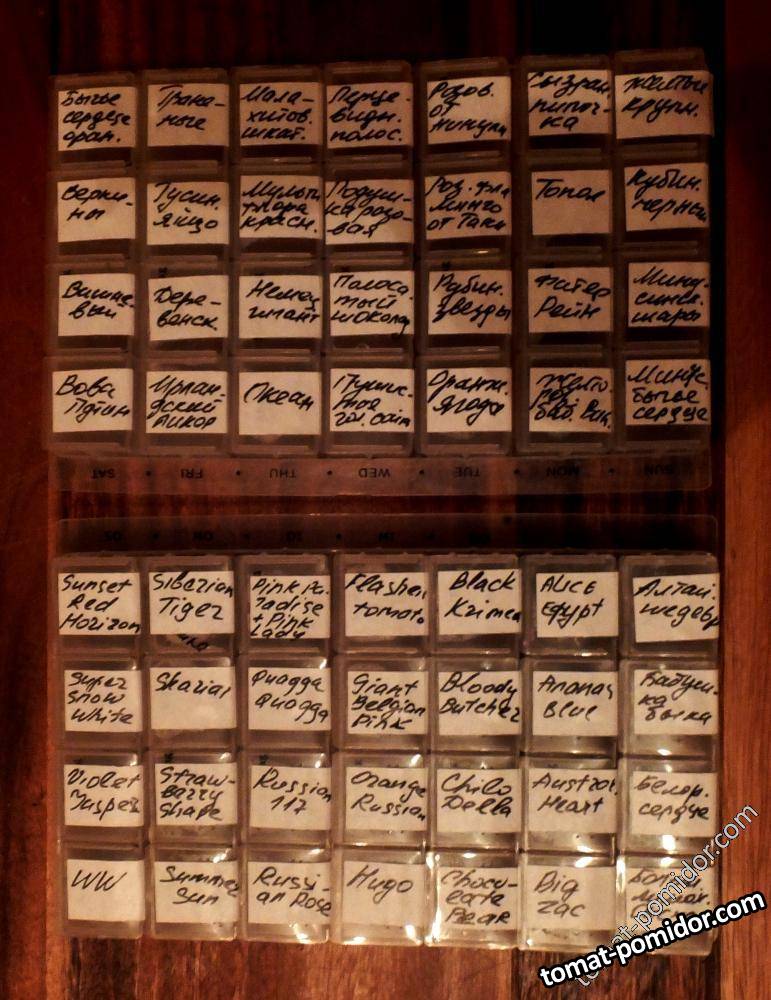 Бычье
сердце
оран.
Грана-
тные
Мала-
хитов.
шкат.
Перце-
видн.
полос.
Розов.
от
Сызран.
пипоч-
ка
Желтый
крупн.
Гусин.
яйцо
Мульти
флора
красн.
Подуш-
ка розо-
вая
Роз. фла
минго
от Тани
Топол
Кубин.
черный
Вишне-
вый
Дере-
венск.
Немец
гигант
Полоса-
тый
шоколад
Рубин.
звезды
Фатер
Рейн
Мину-
синск.
шары
Вова
Путин
Ирлан-
дский
ликер
Океан
Оранж.
ягода
Желто-
Минус.
бычье
сердце
SAT
FRI
THU
WED
TUE
MON
SUN
Sunset
Red
Horizon
Siberian
Tiger
Pink Pa-
radise
+ Pink
Lady
Flashed
tomato
Black
Krimea
ALICE
Egypt
Алтай.
шедевр
Super
Snow
White
Skazial
Quagga
Quagga
Giant
Belgian
Pink
Bloody
Butcher
Ananas
Blue
Бабуш-
ка
Violet
Jasper
Straw-
berry
Shape
Russian
117
Orange
Russian
Chilo
Della
Austral.
Heart
Белор.
сердце
WW
Summer
Sun
Russi-
an Rose
Hugo
Choco-
late
Pear
Big
Zac
tomat-pomidor.com
tomat-pomidor.com